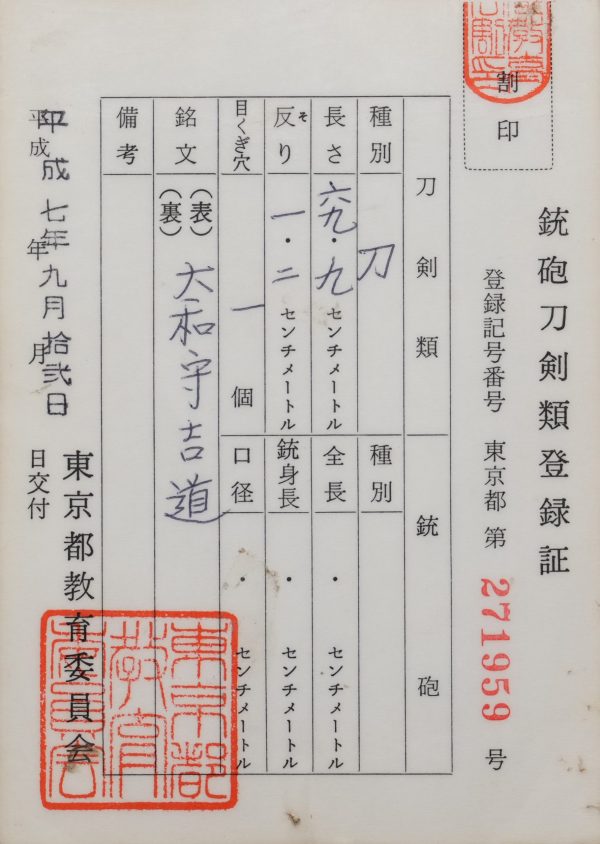 割印
銃砲刀剣類登録証
登録記号番号 東京都 第 271959 号
刀剣類
銃砲
種別 刀
種別
長さ 六九・九 センチメートル
全長 ・ センチメートル
反り そ 一・二 センチメートル
銃身長 ・ センチメートル
目くぎ穴 一 個
口径 ・ センチメートル
銘文 (表) (裏) 大和守吉道
備考
平成 年 月 日交付
平成七年九月拾弐日
東京都教育委員会
東京都教育委員会